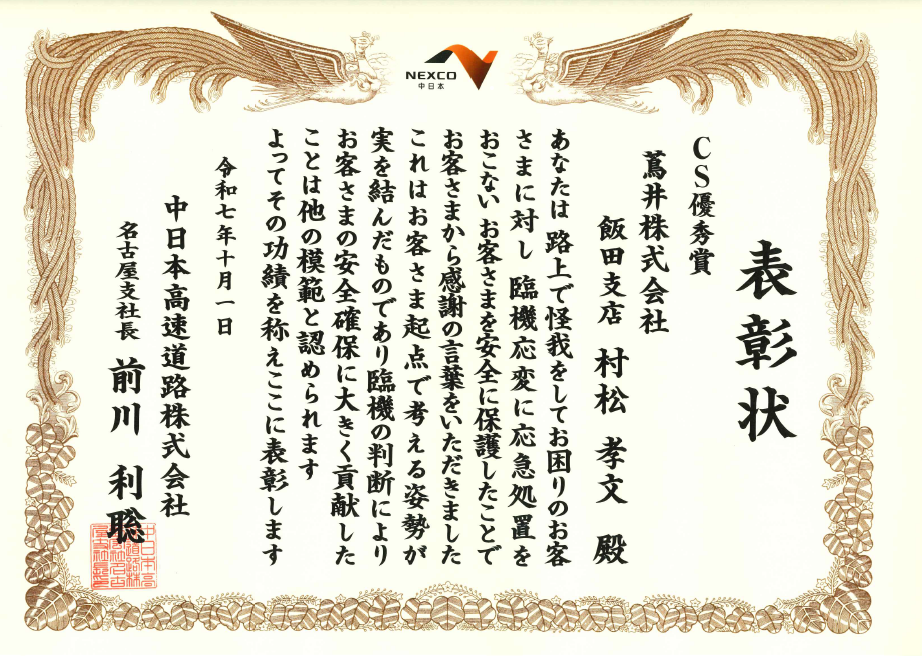 NEXCO
中日本
表彰状
CS優秀賞
蔦井株式会社
飯田支店 村松 孝文 殿
あなたは 路上で怪我をしてお困りのお客
さまに対し 臨機応変に応急処置を
おこない お客さまを安全に保護したことで
お客さまから感謝の言葉をいただきました
これはお客さま起点で考える姿勢が
実を結んだものであり臨機の判断により
お客さまの安全確保に大きく貢献した
ことは他の模範と認められます
よってその功績を称えここに表彰します
令和七年十月一日
中日本高速道路株式会社
名古屋支社長 前川 利聡